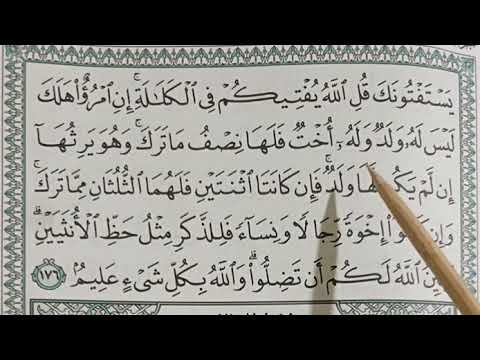 يَسْتَفْتُونَكَ قُلِ ٱللَّهُ يُفْتِيكُمْ فِى ٱلْكَلَٰلَةِ ۚ إِنِ ٱمْرُؤٌا۟ هَلَكَ
لَيْسَ لَهُۥ وَلَدٌ وَلَهُۥٓ أُخْتٌ فَلَهَا نِصْفُ مَا تَرَكَ ۚ وَهُوَ يَرِثُهَآ
إِن لَّمْ يَكُن لَّهَا وَلَدٌ ۚ فَإِن كَانَتَا ٱثْنَتَيْنِ فَلَهُمَا ٱلثُّلُثَانِ مِمَّا تَرَكَ ۚ
وَإِن إِخْوَةً رِّجَالًا وَنِسَآءً فَلِلذَّكَرِ مِثْلُ حَظِّ ٱلْأُنثَيَيْنِ ۗ
ٱللَّهُ لَكُمْ أَن تَضِلُّوا۟ ۗ وَٱللَّهُ بِكُلِّ شَىْءٍ عَلِيمٌۢ ١٧٦